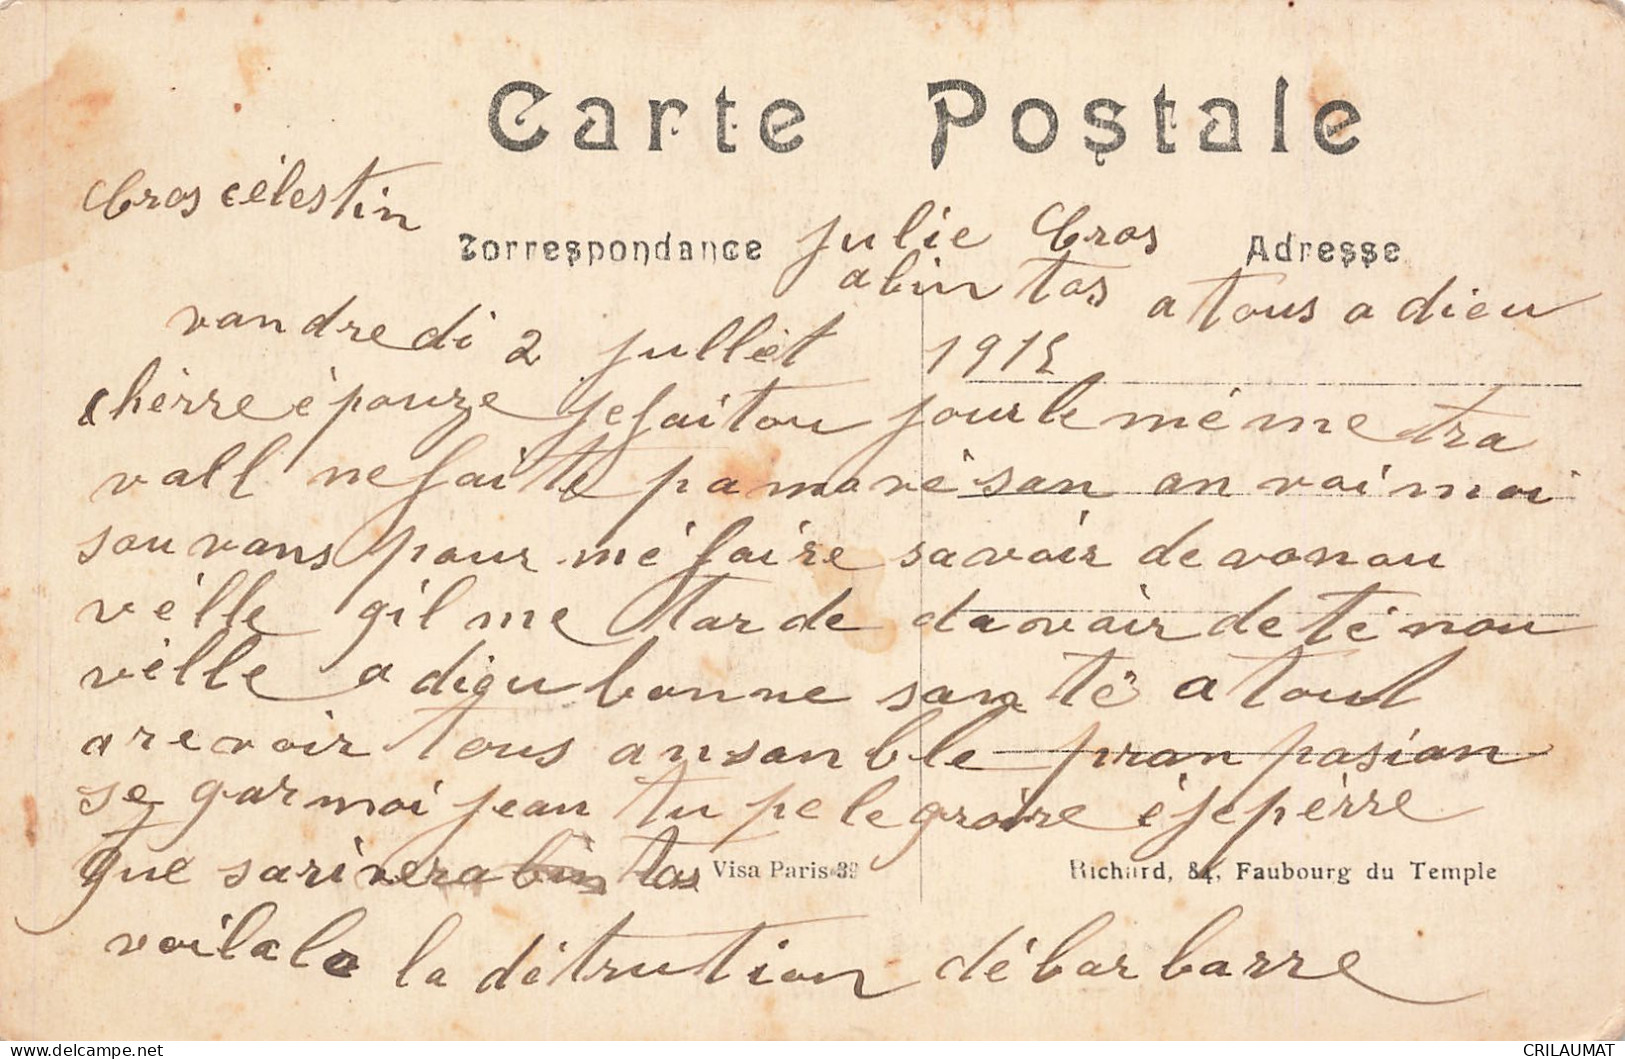 Carte Postale
Cros célestin
Correspondance
julie Cros
Adresse
abin tos
a tous a dieu
vandredi 2 jullièt 1915
chèrre èpouze jefaitou jourle mème tra
vall nefaite pamovè san an vaimoi
souvans pour mé faire savoir devonou
vèlle gil me tarde davoir detè nou
vèlle a digu bonne santè a toul
arevoir tous ansanble pran pasian
se garmoi jean tu pe legroire èjepèrre
que sarivera bin tos
Visa Paris 39
Richard, 84, Faubourg du Temple
voilala la ditrution dèbarbarre
CRILAUMAT